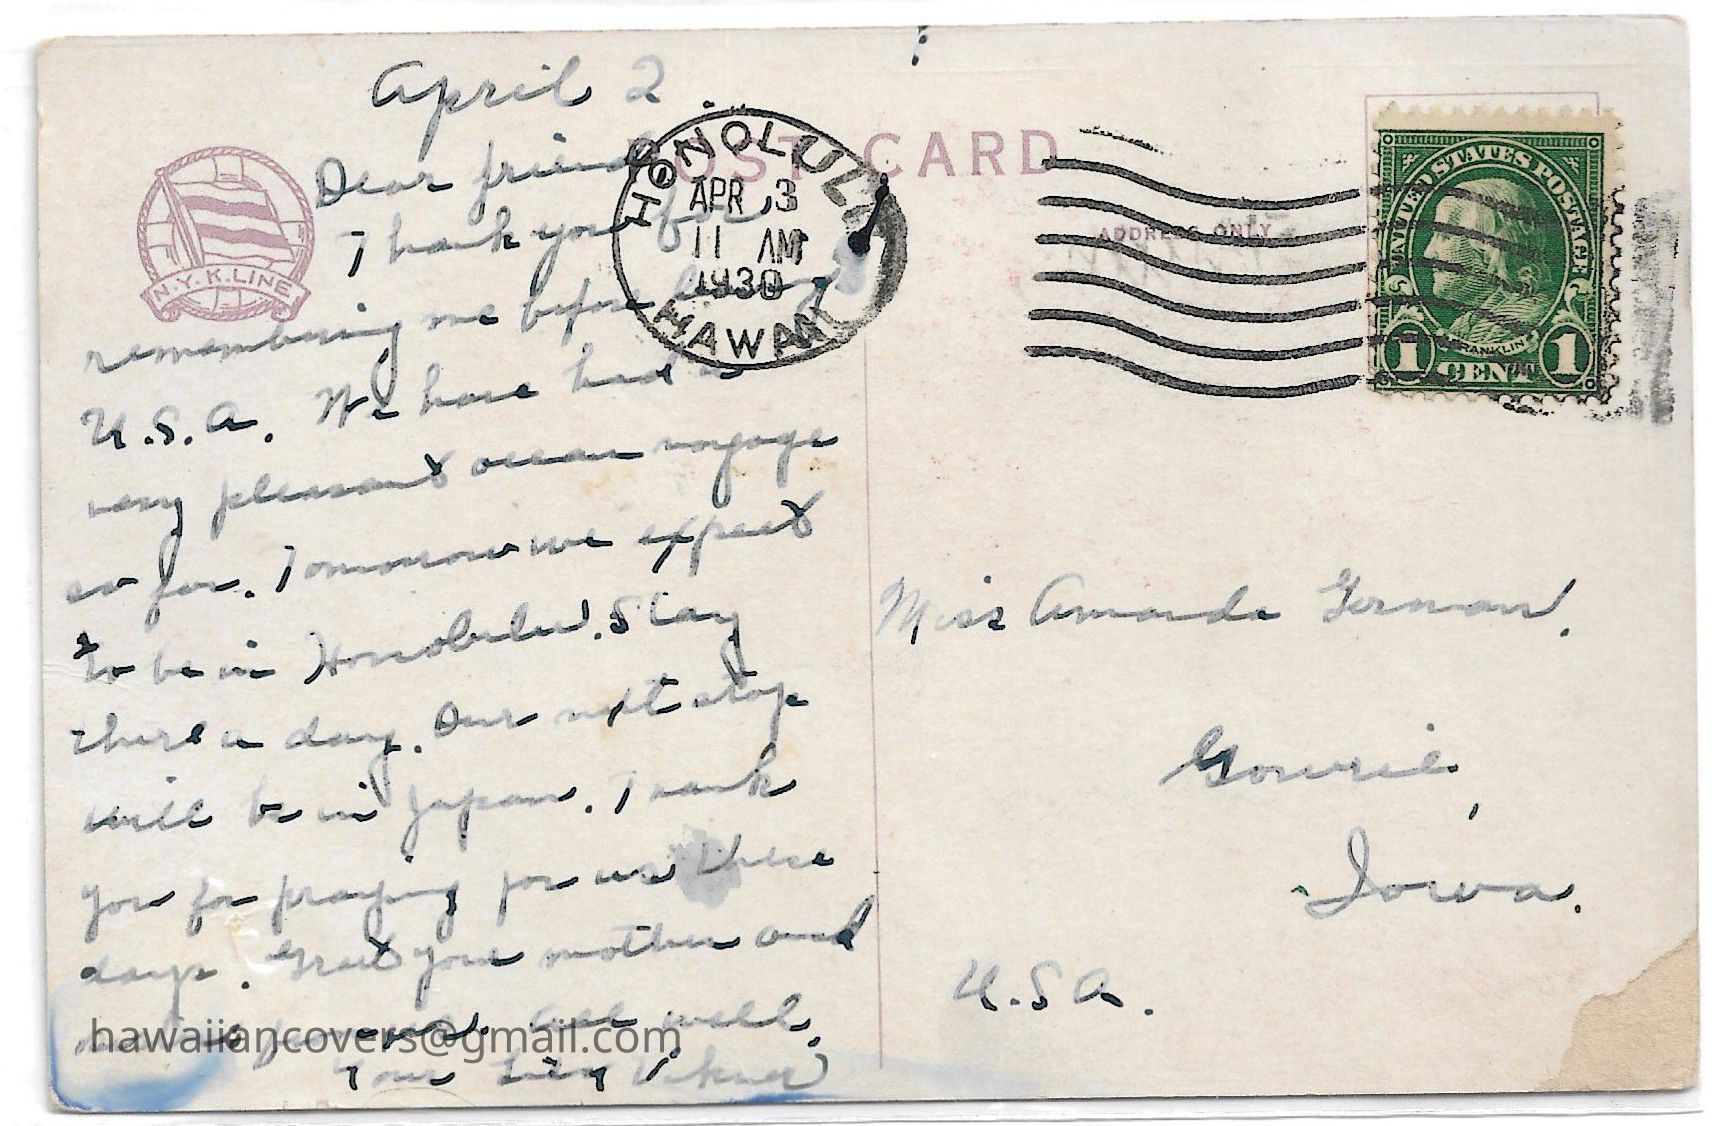 April 2
POST CARD
HONOLULU
APR 3
11 AM
1930
HAWAII
ADDRESS ONLY
UNITED STATES POSTAGE
FRANKLIN
1 CENT 1
N.Y.K.LINE
Dear friend
Thank you for
remembering me before leaving
U.S.A. We have had a
very pleasant ocean voyage
so far. Tomorrow we expect
to be in Honolulu. Stay
there a day. Our next stop
will be in Japan. Thank
you for praying for us these
days. Greet your mother and
All well.
Your
Miss Amanda German.
Gowrie,
Iowa.
U.S.A.
hawaiiancovers@gmail.com